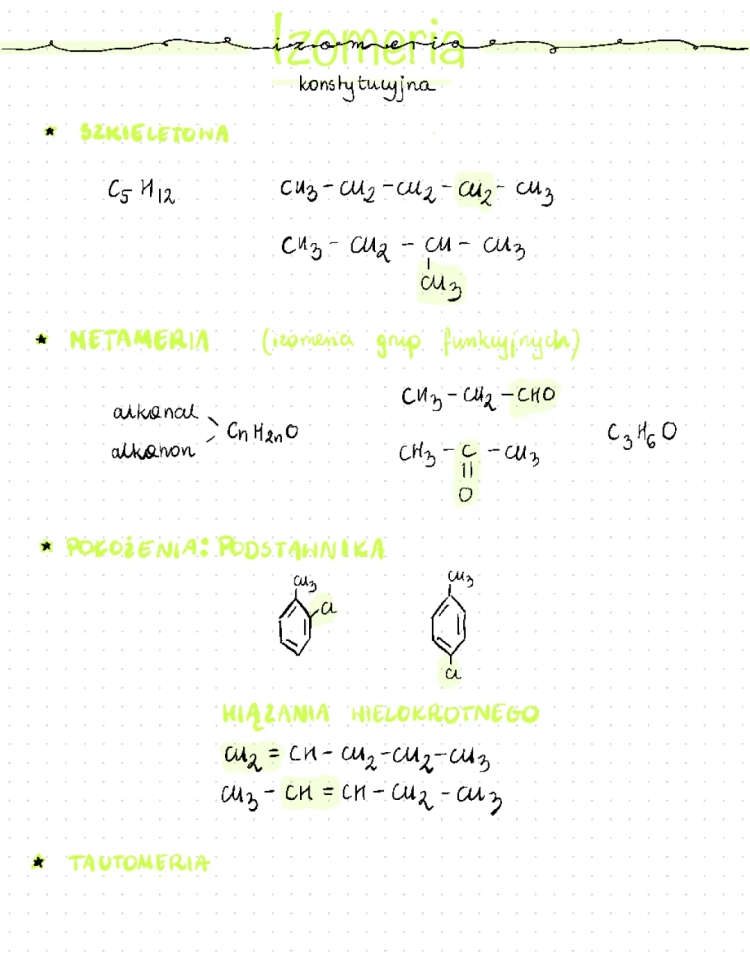 Izomeria
izomeria
konstytucyjna
* SZKIELETOWA
C5H12 CH3-CH2-CH2-CH2-CH3
CH3-CH2-CH-CH3
CH3
* METAMERIA (izomeria grup funkcyjnych)
CH3-CH2-CHO
alkanal
CnH2nO C3H6O
alkanon CH3-C-CH3
O
* POŁOŻENIA: PODSTAWNIKA
CH3 CH3
Cl
Cl
WIĄZANIA WIELOKROTNEGO
CH2=CH-CH2-CH2-CH3
CH3-CH=CH-CH2-CH3
* TAUTOMERIA